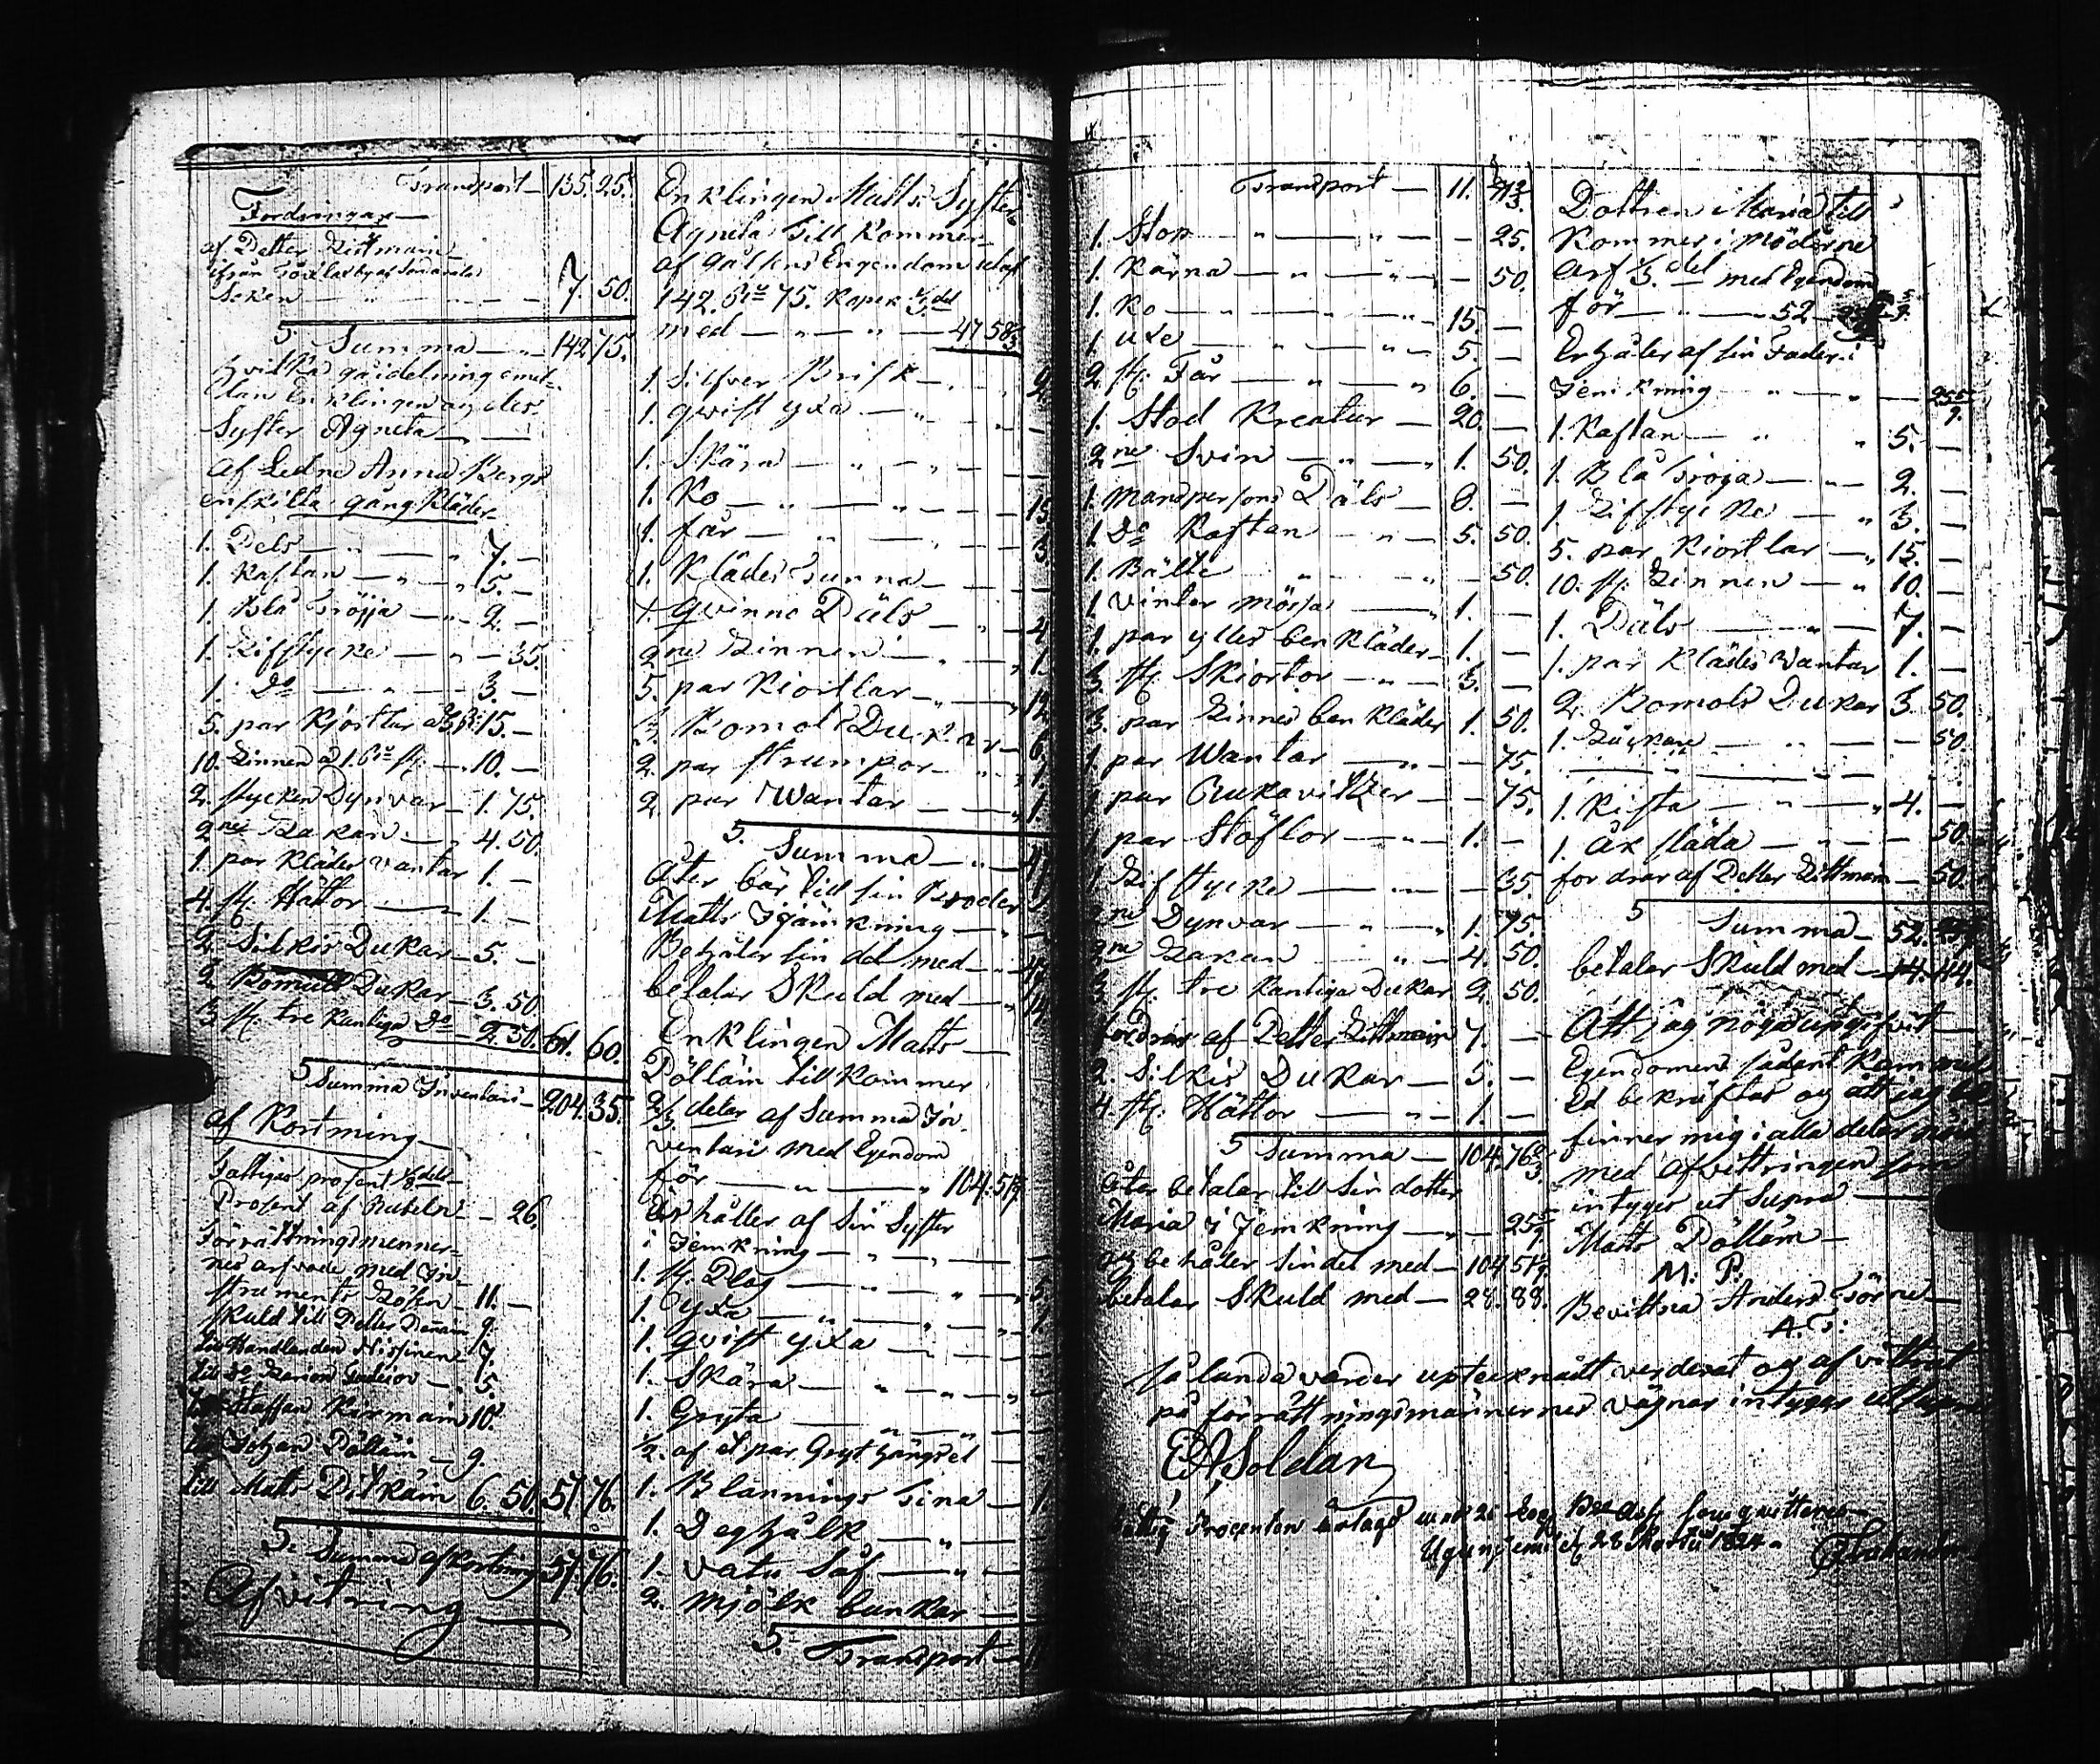 Transport — 135. 25.
Fordringar —
af Petter
ifrån
Soken — " — " — 7. 50.
S. Summa — " 142 75.
hvilka gåi delning emel=
lan Enklingen og des
Syster Agneta — —
af Ledne Anna Bergs
enskilta gång Kläder
1. Pels — " — " 7. —
1. Kaftan — " — " 5. —
1. Blå Tröjja — " 2. —
1. Lifstycke — " — 35.
1. Do — " — 3. —
5. par Kjortlar a 3 15. —
10. Linnen a 1. 10. —
2. stycken Dynvar — 1. 75.
2ne Lakan — " 4. 50.
1. par Kläder vantar 1. —
4. st. Hättor — 1. —
2. Silkis Dukar — 5. —
2. Bomulls Dukar — 3. 50.
3 st. tre kantiga Do — 2. 50. 61. 60.
S Summa Inventari — 204. 35.
af Kortning —
Fattigas prosent 1/8 dels
Prosent af Rubeln — 26.
Förrättningsmenner=
nes arfvode med In=
struments Lösen 11. —
skuld till Petter 9.
till Handlanden 7.
till Do 5.
till Staffan 10.
till Johan Pöllän — 9.
till Matts 6. 50. 57 76.
S. Summa afkortning 57. 76.
Afvitring —
Enklingen Matts Syster
Agneta Till kommer
af gälfens Engendom
142. 75. Kopek 1/3 del
med — " — " — 47 58 1/3
1. Silfver Brisk — " 2
1. qvist yxa — " —
1. Skära — " — " —
1. Ko — " — " — 15
1. får — " — " — 3
1. Kläder Tunna — —
1. qvinno Päls — " 4
2ne Linnen — " 1
5. par Kiortlar — " 12
3. Bomols Dukar — 6
2. par strumpor — " 1
2. par Wantar — 1
S. Summa — " 4
Åter bär till sin Broder
Matts I jämkning — " —
Behåler sin del med — " 4
betalar Skuld med — " 14
Enklingen Matts —
Pöllän till kommer
2/3 delar af Summa In=
ventari med Egendom
för — " — " 104: 51
Er håller af Sin Syster
i Jemkning — " — " —
1. st. Plog — " — " 5
1. yxa — " — " 1
1. qvist yxa — " —
1. Skära — " — " —
1. Gryta — " — " —
1/2. af et par Gryt hängsel —
1. Blannings Tina — 1
1. Deghålk — " —
1. vatu Såf — " —
2. Mjölk bunkar —
S. Transport — 11
Transport — 11. 41 2/3.
1. Stop " — " — 25.
1. Kärna — " — " — 50.
1. Ko — " — " 15. —
1. uxe — " — " 5. —
2 st. Får — " — " 6. —
1. Stod Kreatur — 20. —
2ne Svin — " — " 1. 50.
1. mansperfons Päls — 8. —
1 Do Kaftan — " — 5. 50.
1 Bälte — " — 50.
1 vinter mössa — " 1. —
1. par yller ben kläder 1. —
3. st. Skiortor — " 3. —
3. par Linnes ben Kläder 1. 50.
1 par Wantar — " — 75.
1 par Rukavitzer — — 75.
1 par Stöflor — " — 1. —
1 Lifstycke — " — 35
2ne Dynvar — " — " 1. 75.
2ne Lakan — " — 4. 50.
3 st. tre kantiga Dukar 2. 50.
fordrar af Petter 7. —
2. Silkis Dukar — 5. —
4. st. Hättor — " — 1. —
S Summa — 104. 76 2/3.
åter betalar till sin dotter
Maria i Jemkning — " — 25 5/9
og behåler sin del med — 104. 51 1/9.
betalar Skuld med — 28. 88.
Dottren Maria till
kommer i möderne
arf 1/3. del med Egendom
för — " — 52
Erhåler af sin Fader i
Jemkning " — " — 25 5/9.
1. Kaftan — " — " 5. —
1. Blå Tröga — " — 2. —
1 Lifstycke — " 3. —
5. par Kiortlar — " 15. —
10. st. Linnen — " 10. —
1. Päls — " 7. —
1. par Klädes Vantar 1. —
2. Bomols Dukar 3. 50.
1. — " — 50.
1. Kista — " — " 4. —
1. åk släda — " — 50.
fordrar af Petter — 50.
S Summa — 52.
betaler Skuld med — 14. 44.
Att jag någd upgifvit —
Egendomen sådant kan med
Ed bekräftas og att jag
finner mig i alla delar
med afvittringen som
intyger ut Supra —
Matts Pöllän —
M: P.
Bevittna Anders Törne —
A. T:
så lunda varder uptecknatt verderat og af vittrat
på förrättningsmännernes vägnar intyger ut Supra
EA Soldan
Fattig Procenten 26
28 Martii 1824 —